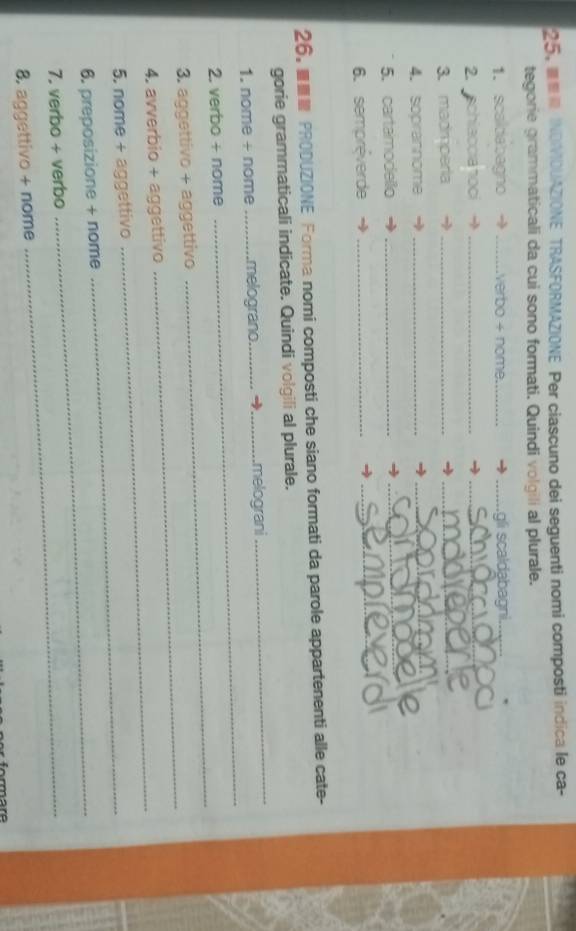 25. INDIVIDUAZIONE TRASFORMAZIONE Per ciascuno dei seguenti nomi composti indica le ca-
tegorie grammaticali da cui sono formati. Quindi volgili al plurale.
1. scaldabagno → verbo + nome → gli scaldabagni
2. schiaccianoci → →
3. madreperla → → madreperle
4. soprannome → →
5. cartamodello → → cartamodelle
6. sempreverde → → sempreverdi
26. PRODUZIONE Forma nomi composti che siano formati da parole appartenenti alle cate-
gorie grammaticali indicate. Quindi volgili al plurale.
1. nome + nome melograno → melograni
2. verbo + nome
3. aggettivo + aggettivo
4. avverbio + aggettivo
5. nome + aggettivo
6. preposizione + nome
7. verbo + verbo
8. aggettivo + nome
per formare